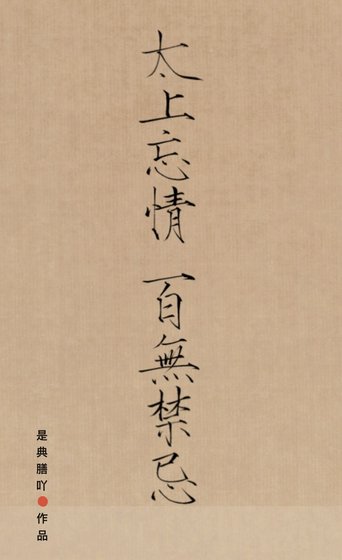 太上忘情 百無禁忌
是典膳吖●作品